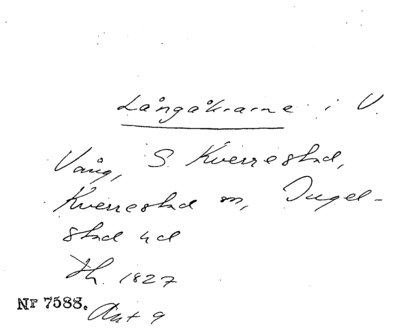 Långåkrarne i V.
Vång, S. Kverrestad,
Kverrestad sn, Ingel-
stad hd
Sk. 1827
Nr 7588. Akt 9